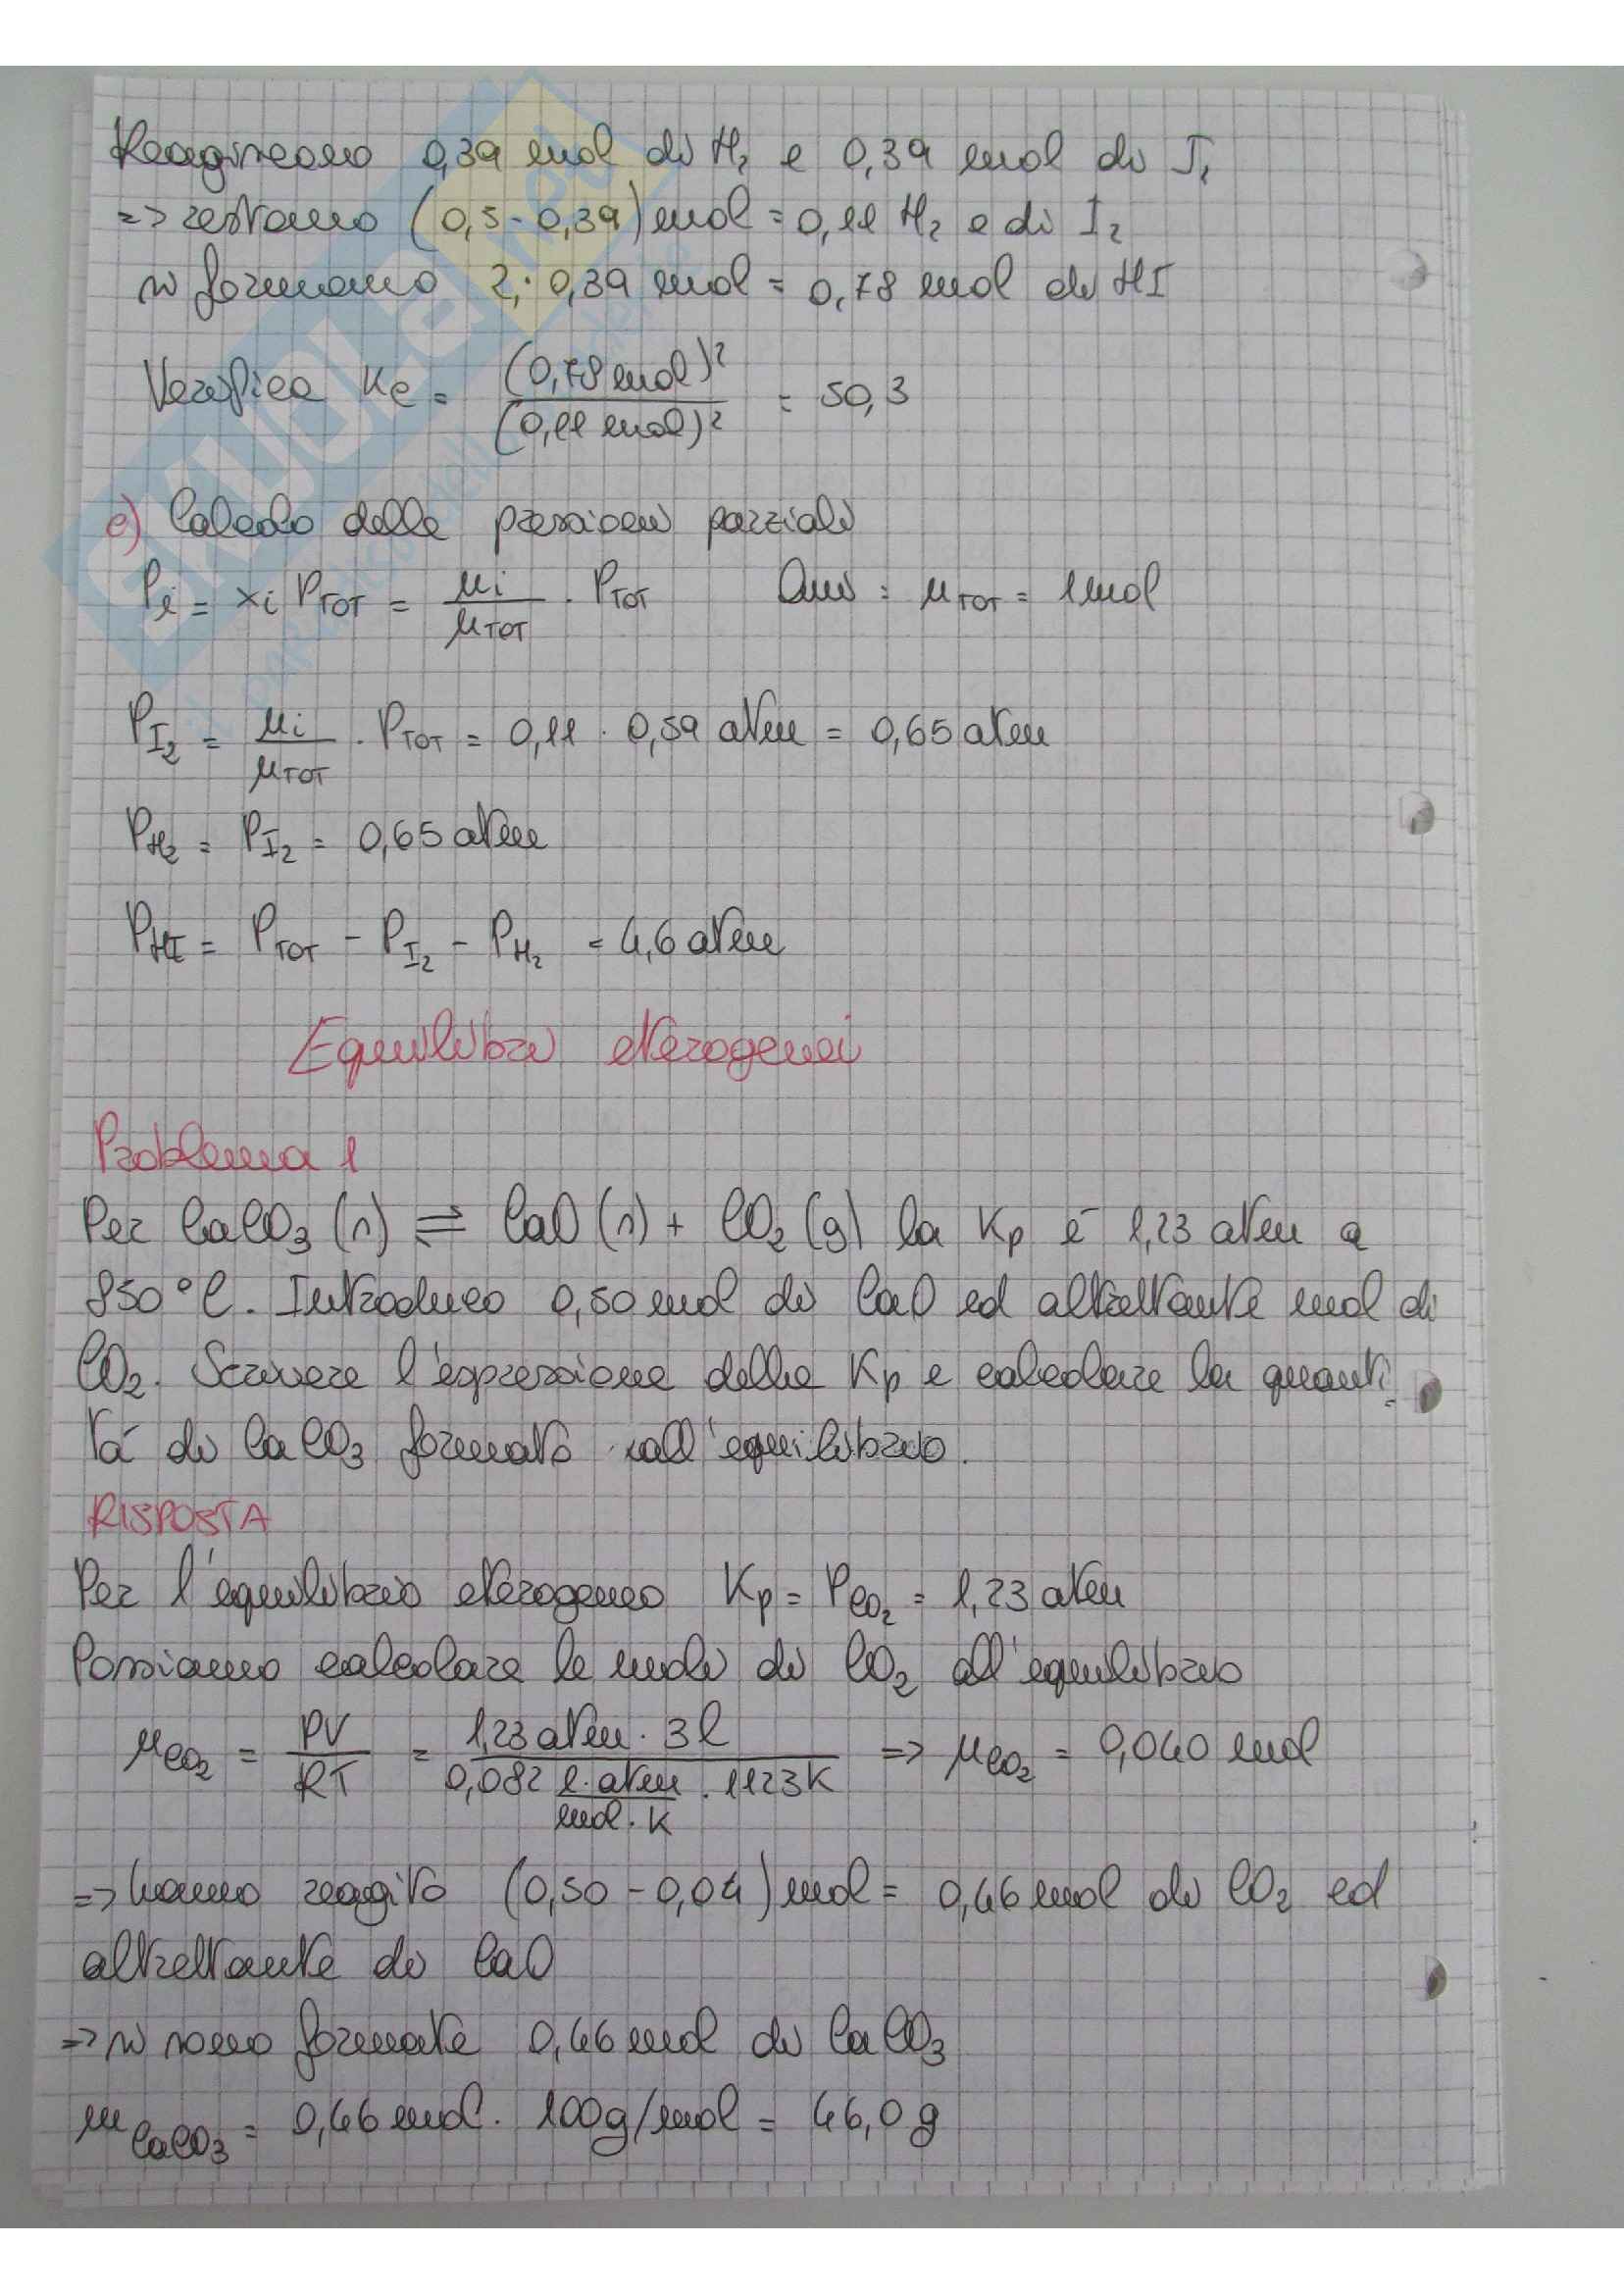 Reagiscono 0,39 mol di H₂ e 0,39 mol di I₂
=> restano (0,5 - 0,39) mol = 0,11 H₂ e di I₂
si formano 2 · 0,39 mol = 0,78 mol di HI
Verifica Kc = (0,78 mol)² / (0,11 mol)² = 50,3
e) Calcolo delle pressioni parziali
Pi = xi PTOT = ni / nTOT · PTOT Qui : nTOT = 1 mol
PI₂ = ni / nTOT · PTOT = 0,11 · 0,59 atm = 0,65 atm
PH₂ = PI₂ = 0,65 atm
PHI = PTOT - PI₂ - PH₂ = 4,6 atm
Equilibri eterogenei
Problema 1
Per CaCO₃ (s) ⇌ CaO (s) + CO₂ (g) la Kp é 1,23 atm a
850°C. Introduco 0,50 mol di CaO ed altrettante mol di
CO₂. Scrivere l'espressione della Kp e calcolare la quanti
tá di CaCO₃ formata all'equilibrio.
RISPOSTA
Per l'equilibrio eterogeneo Kp = PCO₂ = 1,23 atm
Possiamo calcolare le moli di CO₂ all'equilibrio
nCO₂ = PV / RT = 1,23 atm · 3 l / 0,082 l · atm / mol · K · 1123 K => nCO₂ = 0,040 mol
=> hanno reagito (0,50 - 0,04) mol = 0,46 mol di CO₂ ed
altrettante di CaO
=> si sono formate 0,46 mol di CaCO₃
mCaCO₃ = 0,46 mol · 100 g/mol = 46,0 g